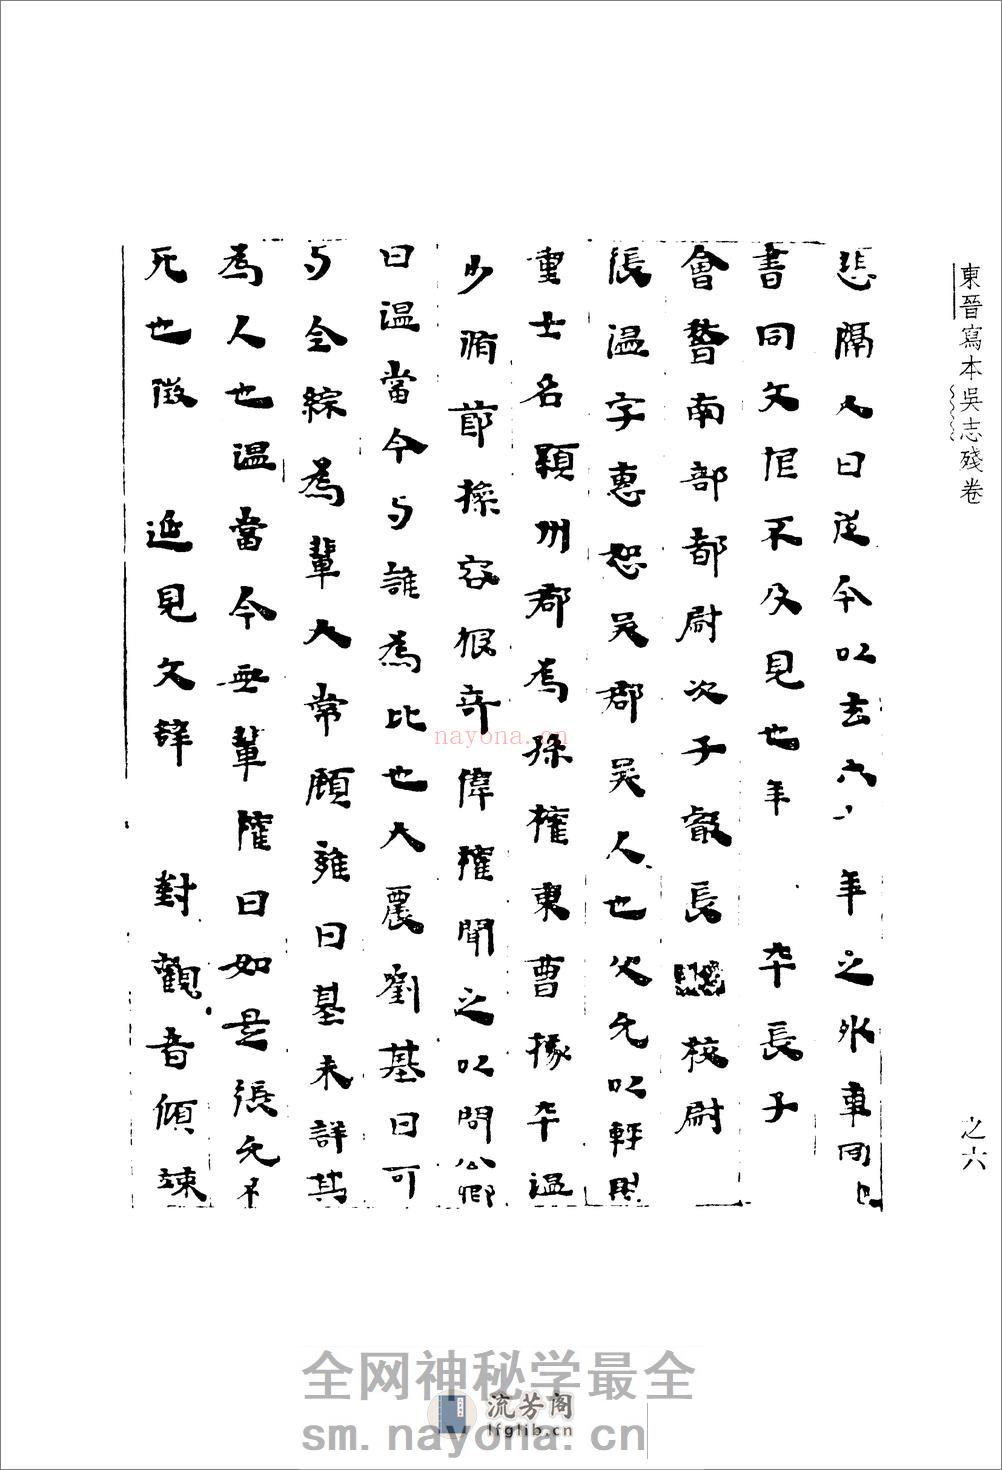 東晉寫本吳志殘卷
之六
悲隔人日從今以去六 年之外車同
書同文恨不及見也年 卒長子
會稽南部都尉次子叡長 校尉
張溫字惠恕吳郡吳人也父允以輕財
重士名顯州郡為孫權東曹掾卒溫
少脩節操容狠奇偉權聞之以問公卿
曰溫當今与誰為比也大農劉基曰可
与全綜為輩大常顧雍曰基未詳其
為人也溫當今無輩權曰如是張允不
死也徵 延見文辭 對觀者傾竦
nayona.cn
全网神秘学最全
流芳阁
lfglib.cn
sm.nayona.cn